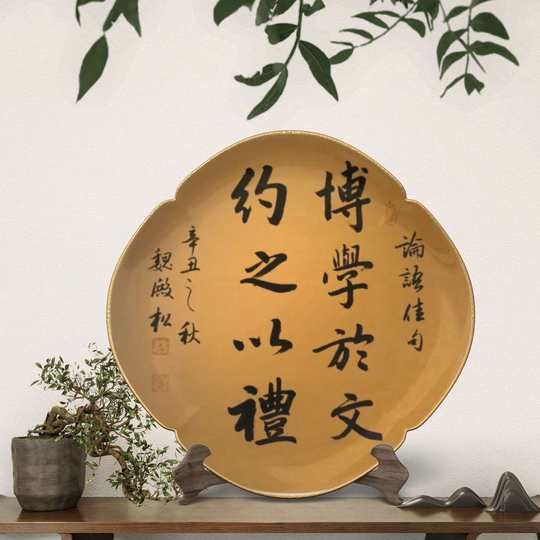 論語佳句
博學於文
約之以禮
辛丑之秋
魏殿松